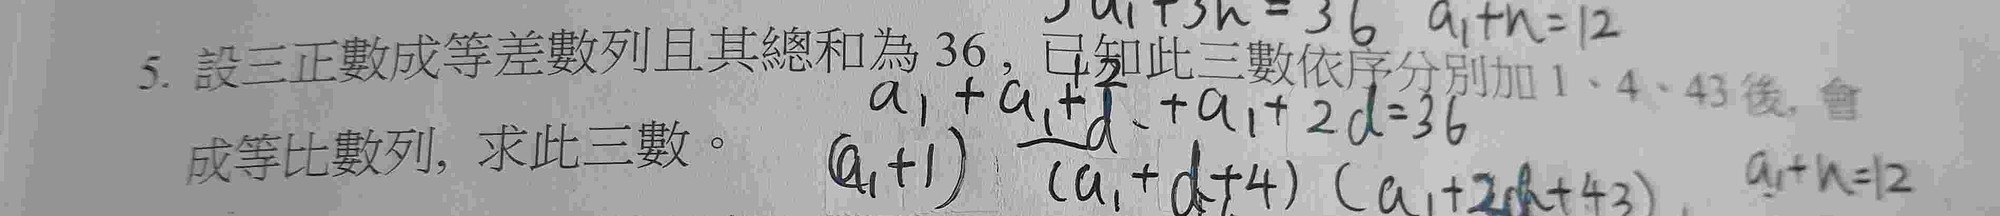 3a₁+3n=36 a₁+n=12
5. 設三正數成等差數列且其總和為 36，已知此三數依序分別加 1、4、43 後, 會
a₁+a₁+d+a₁+2d=36
成等比數列, 求此三數。
(a₁+1) (a₁+d+4) (a₁+2d+43) a₁+n=12